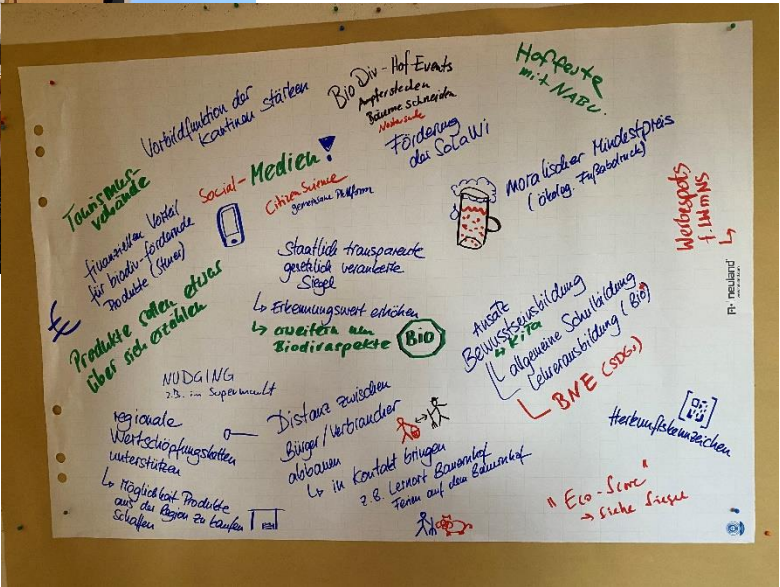 Vorbildfunktion der
Kantinen stärken
BioDiv-Hof Events
Ampferstechen
Bäume schneiden
Förderung
der SoLaWi
Hoffeste
mit NABU.
Tourismus-
verbände
Social-Medien!
Citizen Science
gemeinsame Plattform
moralischer Mindestpreis
(ökolog. Fußabdruck)
Werbespots
finanziellen Vorteil
für biodiv.-fördernde
Produkte (Steuer)
€
Staatlich transparente
gesetzlich verankerte
Siegel
↳ Erkennungswert erhöhen
↳ erweitern um
Biodivaspekte
Bio
Produkte sollen etwas
über sich erzählen
Ansatz
Bewusstseinsbildung
↳ KiTa
allgemeine Schulbildung
Lehrerausbildung (Bio)
BNE (SDGs)
NUDGING
z.B. im Supermarkt
regionale
Wertschöpfungsketten
unterstützen
↳ Möglichkeit Produkte
aus der Region zu kaufen
schaffen
Distanz zwischen
Bürger/Verbraucher
abbauen
↳ in Kontakt bringen
z.B. Lernort Bauernhof
Ferien auf dem Bauernhof
Herkunftskennzeichen
"Eco-Score"
→ siehe Siegel
neuland